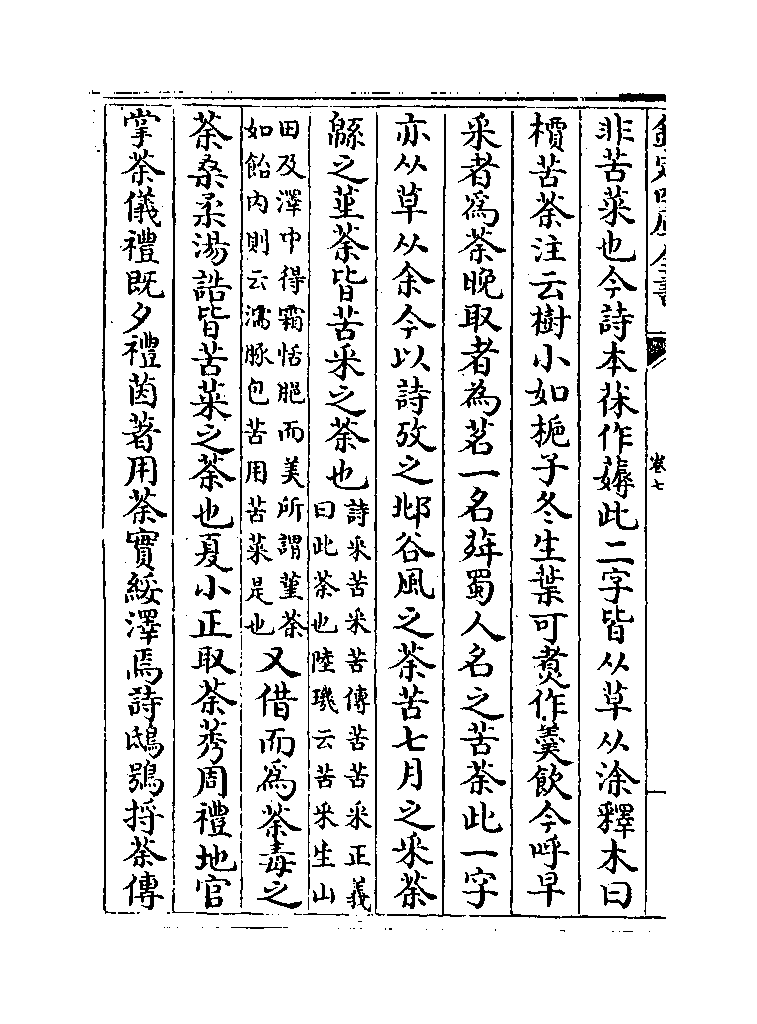 欽定四庫全書
卷七
非苦菜也今詩本茠作薅此二字皆从草从涂釋木曰
檟苦荼注云樹小如梔子冬生葉可煮作羹飲今呼早
采者爲荼晚取者為茗一名荈蜀人名之苦荼此一字
亦从草从余今以詩攷之邶谷風之荼苦七月之采荼
緜之堇荼皆苦采之荼也詩采苦采苦傳苦苦采正義
曰此荼也陸璣云苦采生山
田及澤中得霜恬脆而美所謂堇荼
如飴内則云濡豚包苦用苦菜是也又借而爲荼毒之
荼桑柔湯誥皆苦菜之荼也夏小正取荼莠周禮地官
掌荼儀禮既夕禮茵著用荼實綏澤焉詩鴟鴞捋荼傳